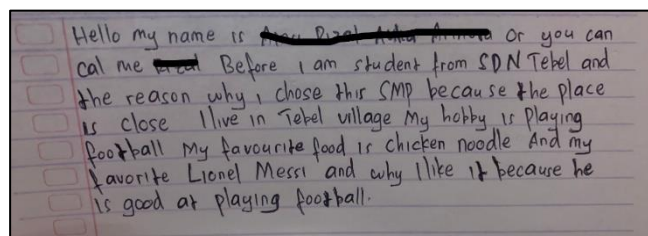 Hello my name is Or you can
cal me Before I am student from SDN Tebel and
the reason why I chose this SMP because the place
is close I live in Tebel village My hobby is playing
football My favourite food is chicken noodle And my
favorite Lionel Messi and why I like it because he
is good at playing football.